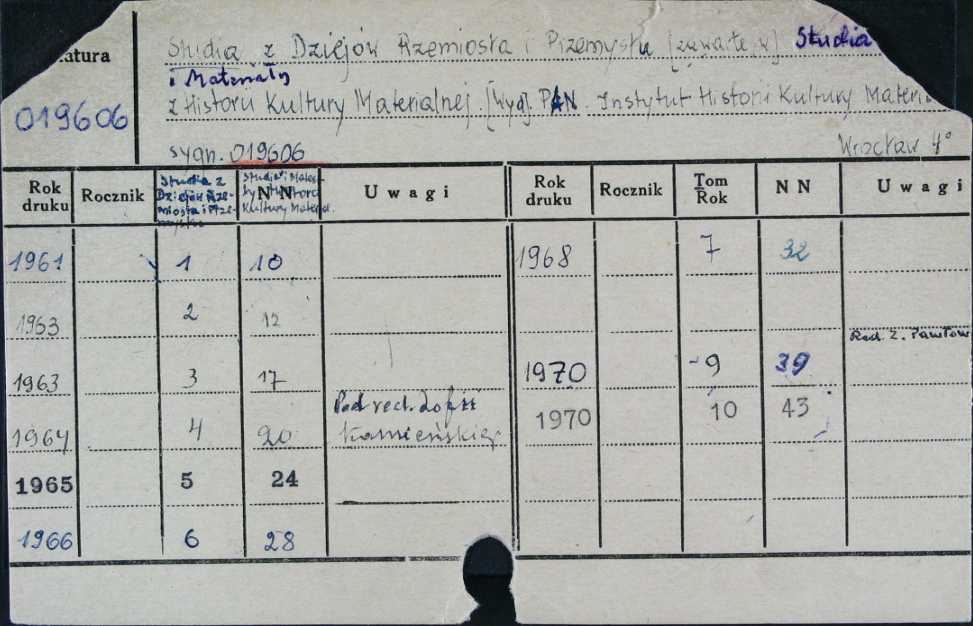 atura
Studia z Dziejów Rzemiosła i Przemysłu [zawarte w] Studia
i Materiały
019606
z Historii Kultury Materialnej. [Wyd]. PAN. Instytut Historii Kultury Materia
sygn. 019606
Wrocław 4°
Rok druku Rocznik Studia z Dziejów Rze-miosła i Prze-mysłu NN Studia i Mater. z Historii Kultury Material. Uwagi Rok druku Rocznik Tom Rok NN Uwagi
1961 1 10 1968 7 32
1963 2 12
Red. Z. Pawłow
1963 3 17 1970 9 39
Pod red. Zofii
1964 4 20 Kamieńskiej 1970 10 43
1965 5 24
1966 6 28